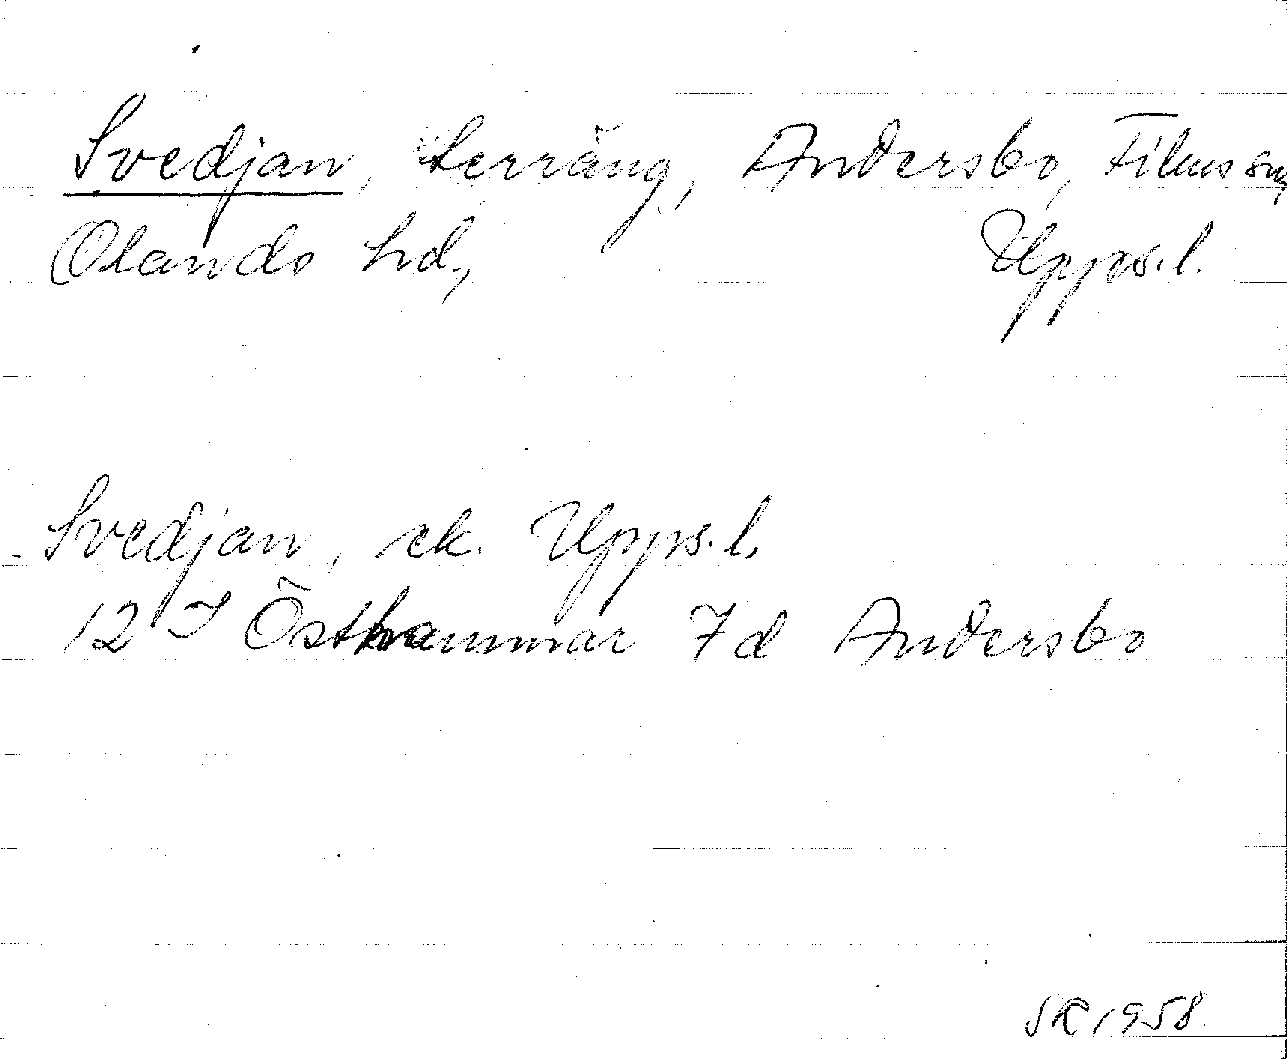 Svedjan, terräng, Andersbo, Films sn,
Olands hd, Upps.l.
Svedjan, ek. Upps.l.
12 I Östhammar 7d Andersbo
SR 1958